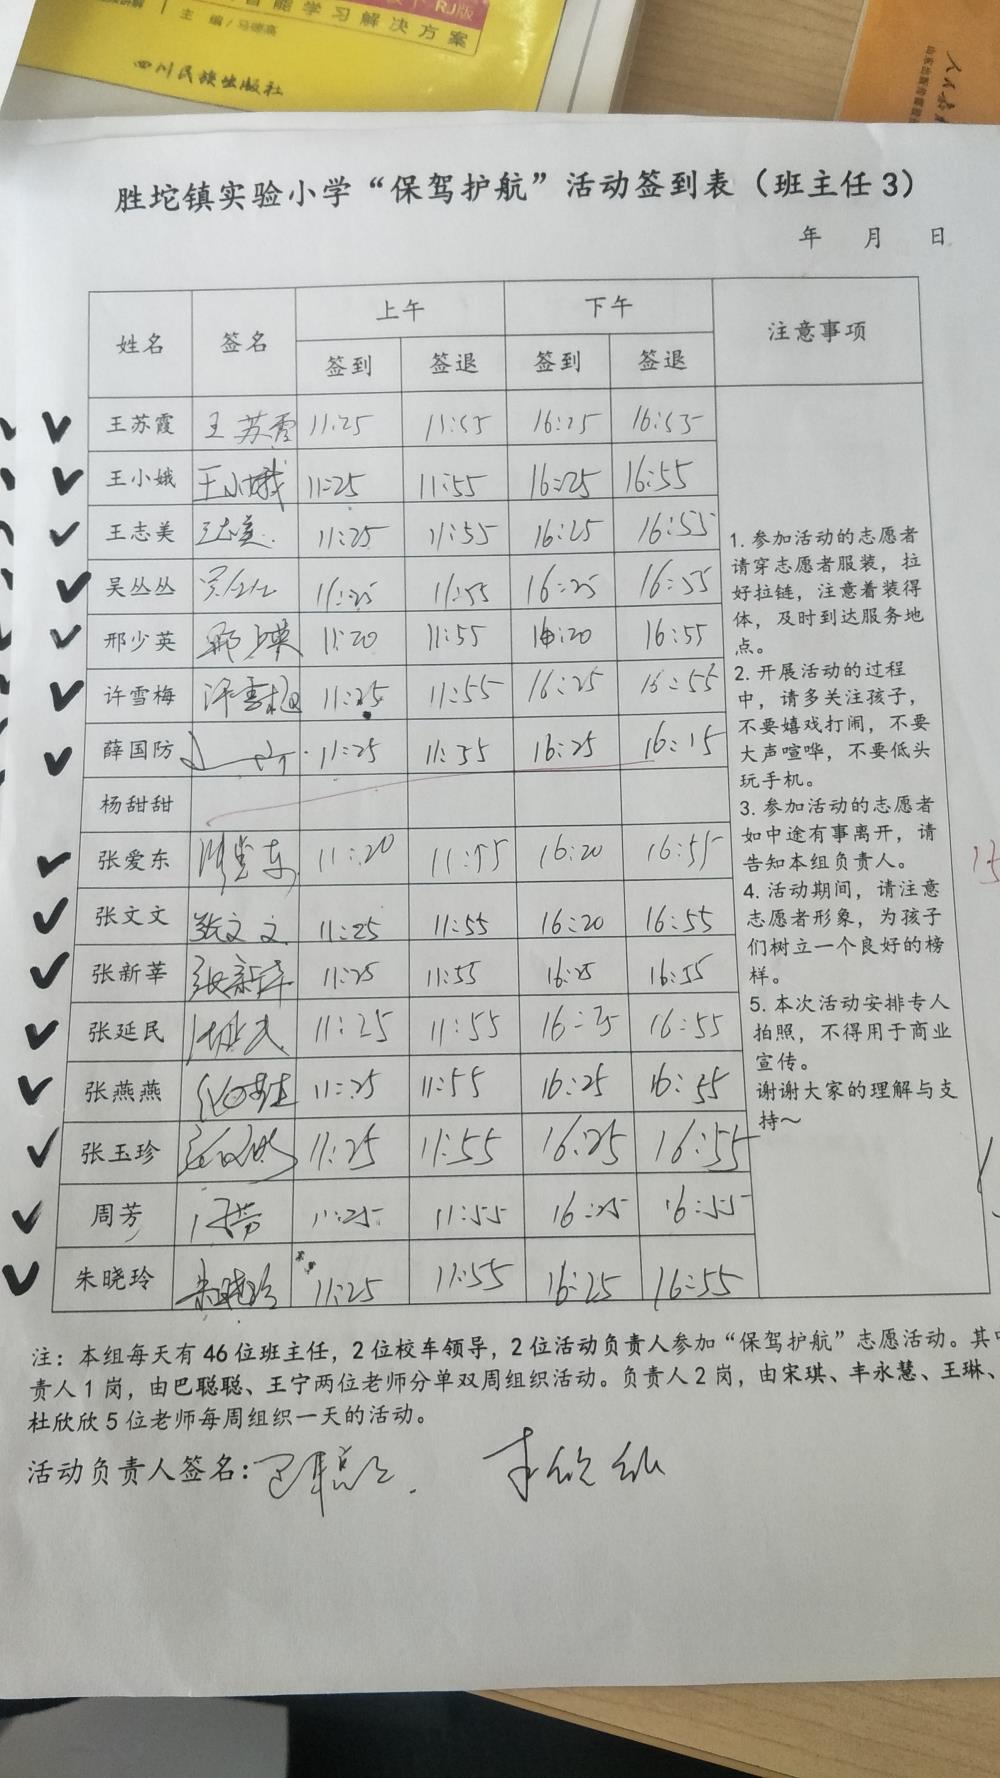 RJ版
智能学习解决方案
主 编/马德高
四川民族出版社
胜坨镇实验小学“保驾护航”活动签到表（班主任3）
年 月 日
姓名 签名 上午 下午 注意事项
签到 签退 签到 签退
王苏霞 王苏霞 11:25 11:55 16:25 16:55
王小娥 王小娥 11:25 11:55 16:25 16:55
王志美 王志美 11:25 11:55 16:25 16:55
吴丛丛 吴丛丛 11:25 11:55 16:25 16:55
邢少英 邢少英 11:20 11:55 16:20 16:55
许雪梅 许雪梅 11:25 11:55 16:25 16:55
薛国防 11:25 11:55 16:25 16:15
杨甜甜
张爱东 张爱东 11:20 11:55 16:20 16:55
张文文 张文文 11:25 11:55 16:20 16:55
张新莘 张新莘 11:25 11:55 16:25 16:55
张延民 张延民 11:25 11:55 16:25 16:55
张燕燕 11:25 11:55 16:25 16:55
张玉珍 11:25 11:55 16:25 16:55
周芳 周芳 11:25 11:55 16:25 16:55
朱晓玲 朱晓玲 11:25 11:55 16:25 16:55
1. 参加活动的志愿者
请穿志愿者服装，拉
好拉链，注意着装得
体，及时到达服务地
点。
2. 开展活动的过程
中，请多关注孩子，
不要嬉戏打闹，不要
大声喧哗，不要低头
玩手机。
3. 参加活动的志愿者
如中途有事离开，请
告知本组负责人。
4. 活动期间，请注意
志愿者形象，为孩子
们树立一个良好的榜
样。
5. 本次活动安排专人
拍照，不得用于商业
宣传。
谢谢大家的理解与支
持～
15
注：本组每天有46位班主任，2位校车领导，2位活动负责人参加“保驾护航”志愿活动。其中
责人1岗，由巴聪聪、王宁两位老师分单双周组织活动。负责人2岗，由宋琪、丰永慧、王琳、
杜欣欣5位老师每周组织一天的活动。
活动负责人签名：巴聪聪